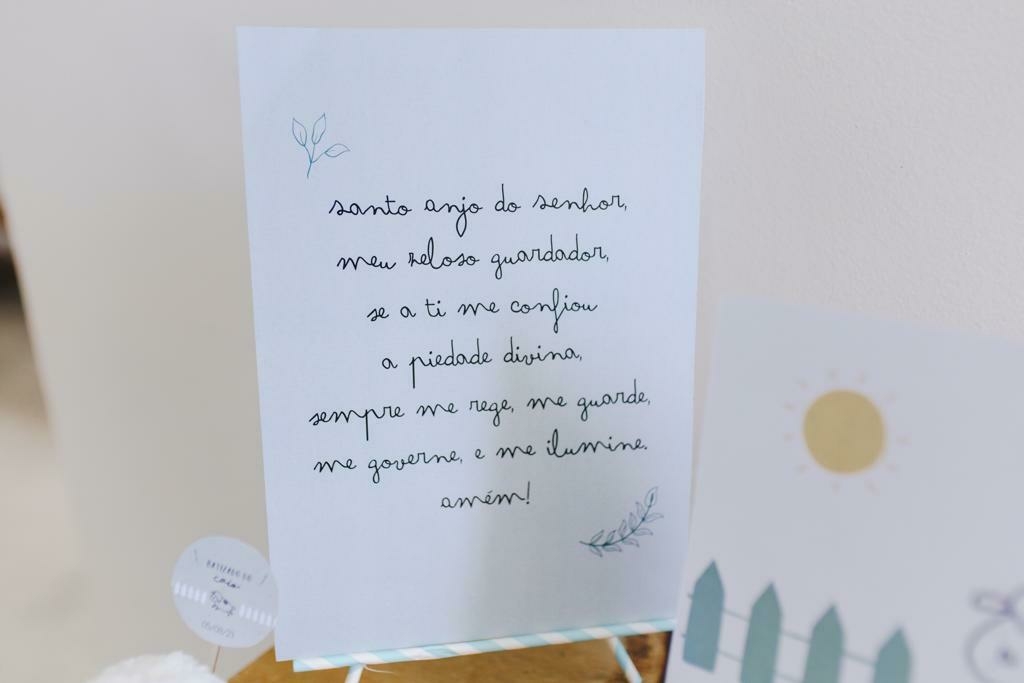 santo anjo do senhor,
meu zeloso guardador,
se a ti me confiou
a piedade divina,
sempre me rege, me guarde,
me governe, e me ilumine.
amém!
BATIZADO DO